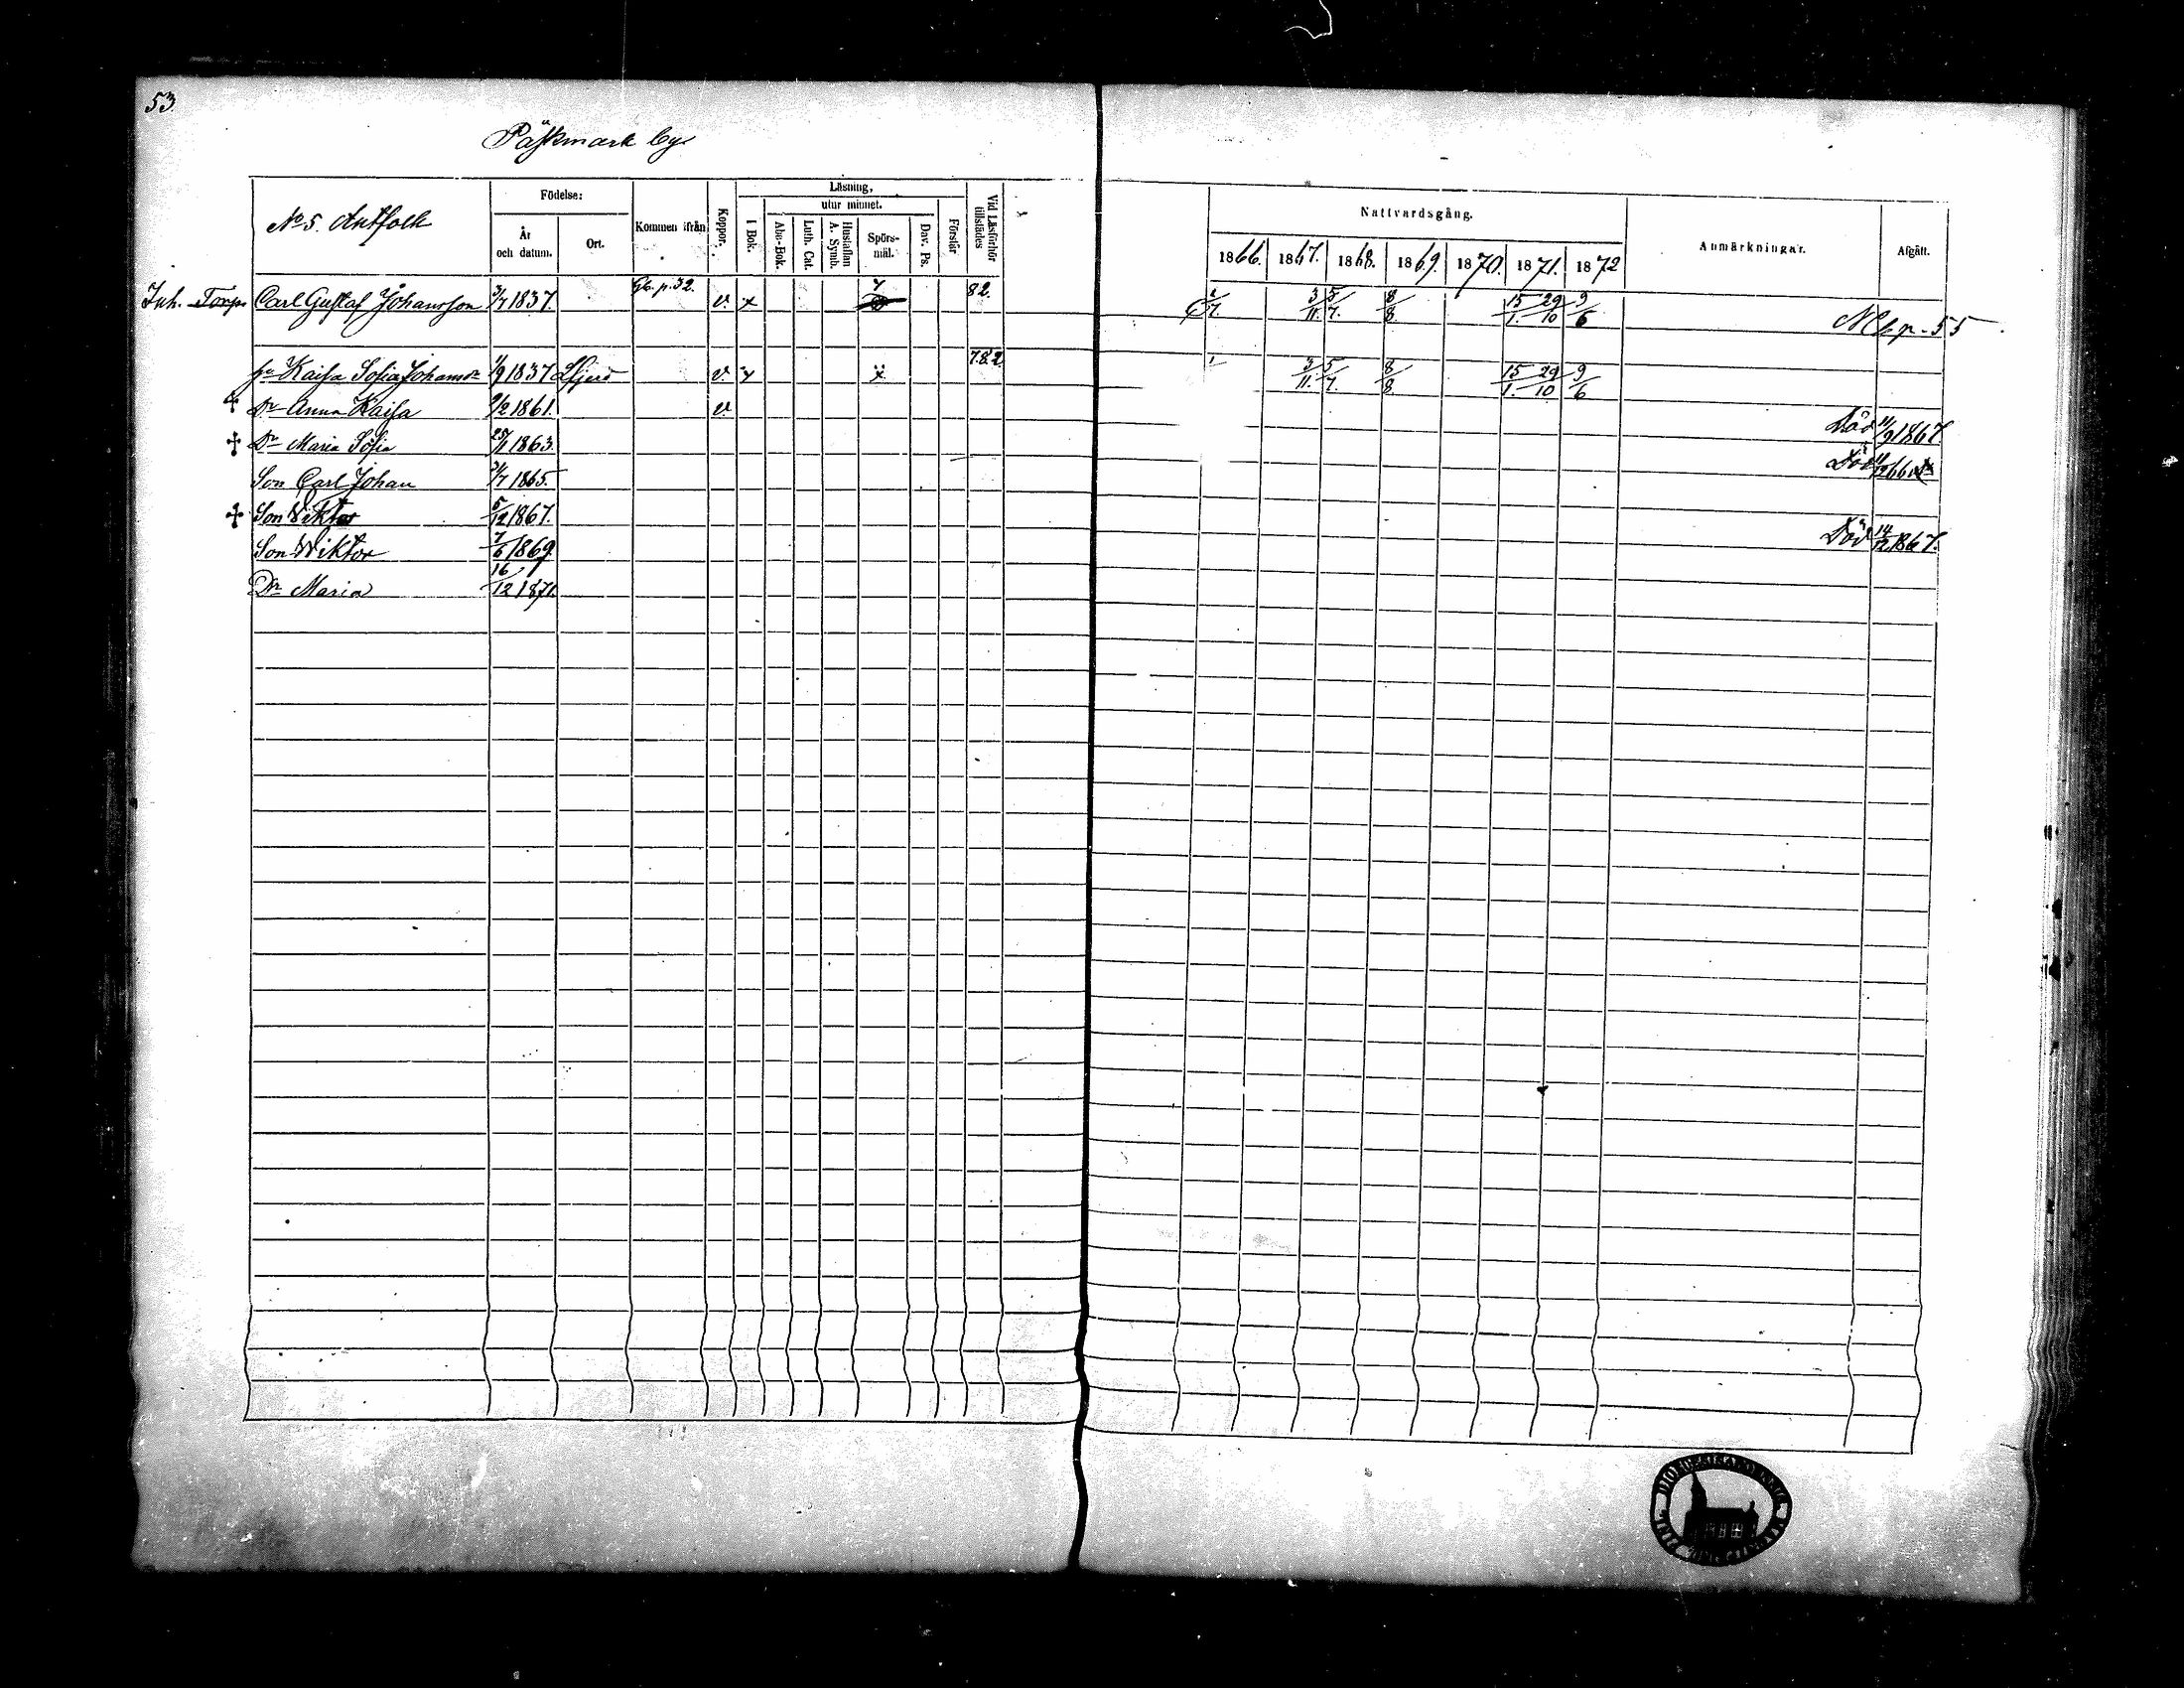 53
Påskmark by
No 5. Antfolk
Födelse:
År och datum.
Ort.
Kommen ifrån
Koppor.
Läsning,
utur minnet.
I Bok.
Abc-Bok.
Luth. Cat.
Hustaflan A. Symb.
Spörs-mål.
Dav. Ps.
Förstår
Vid Läsförhör tillstädes
Nattvardsgång.
1866. 1867. 1868. 1869. 1870. 1871. 1872
Anmärkningar.
Afgått.
Inh. Torp Carl Gustaf Johansson 3/7 1837. Gb. p. 32. v. x 82. 3/11. 5/7. 8/8 15/1. 29/10 9/6 Nb p. 55
hu Kaisa Sofia Johansdr 1/9 1837 v. x 782 3/11. 5/7. 8/8 15/1. 29/10 9/6
+ Dr Anna Kaisa 9/2 1861. v. Död 11/9 1867.
+ Dr Maria Sofia 25/11 1863. Död
Son Carl Johan 1865.
+ Son Viktor 5/12 1867. Död 14/12 1867.
Son Wiktor 7/6 1869.
Dr Maria 16/12 1871.